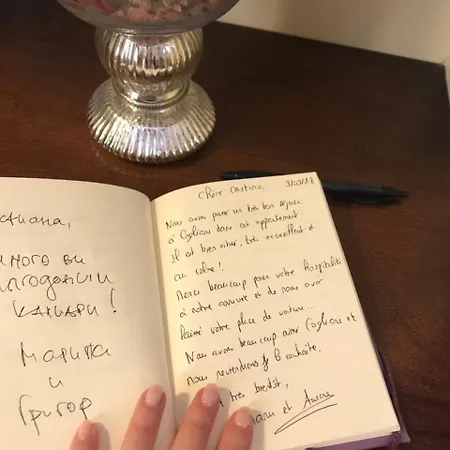 много ви
благодарим
Марина
и
Григор
Chère Cristina 3/03/18
Nous avons passé un très bon séjour
à Cagliari dans cet appartement
Il est bien situé, très accueillant et
au calme!
Merci beaucoup pour votre hospitalité
à notre arrivée et de nous avoir
laissé votre place de voiture...
Nous avons beaucoup aimé Cagliari et
nous reviendrons je le souhaite.
A très bientôt,
et